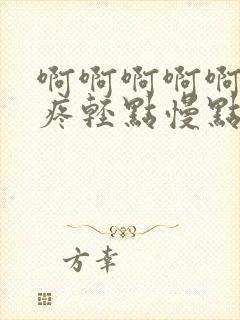 啊啊啊啊啊
疼轻點慢點
方幸